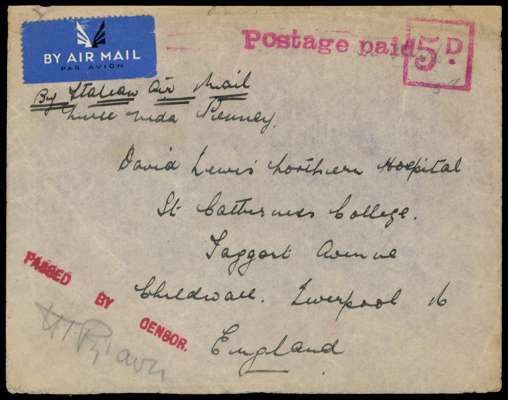 BY AIR MAIL
PAR AVION
Postage paid 5D.
By Italian Air Mail
Nurse Nida Penney.
David Lewis Northern Hospital
St Catherines College.
Taggart Avenue
Childwall. Liverpool 16
England
PASSED BY CENSOR.